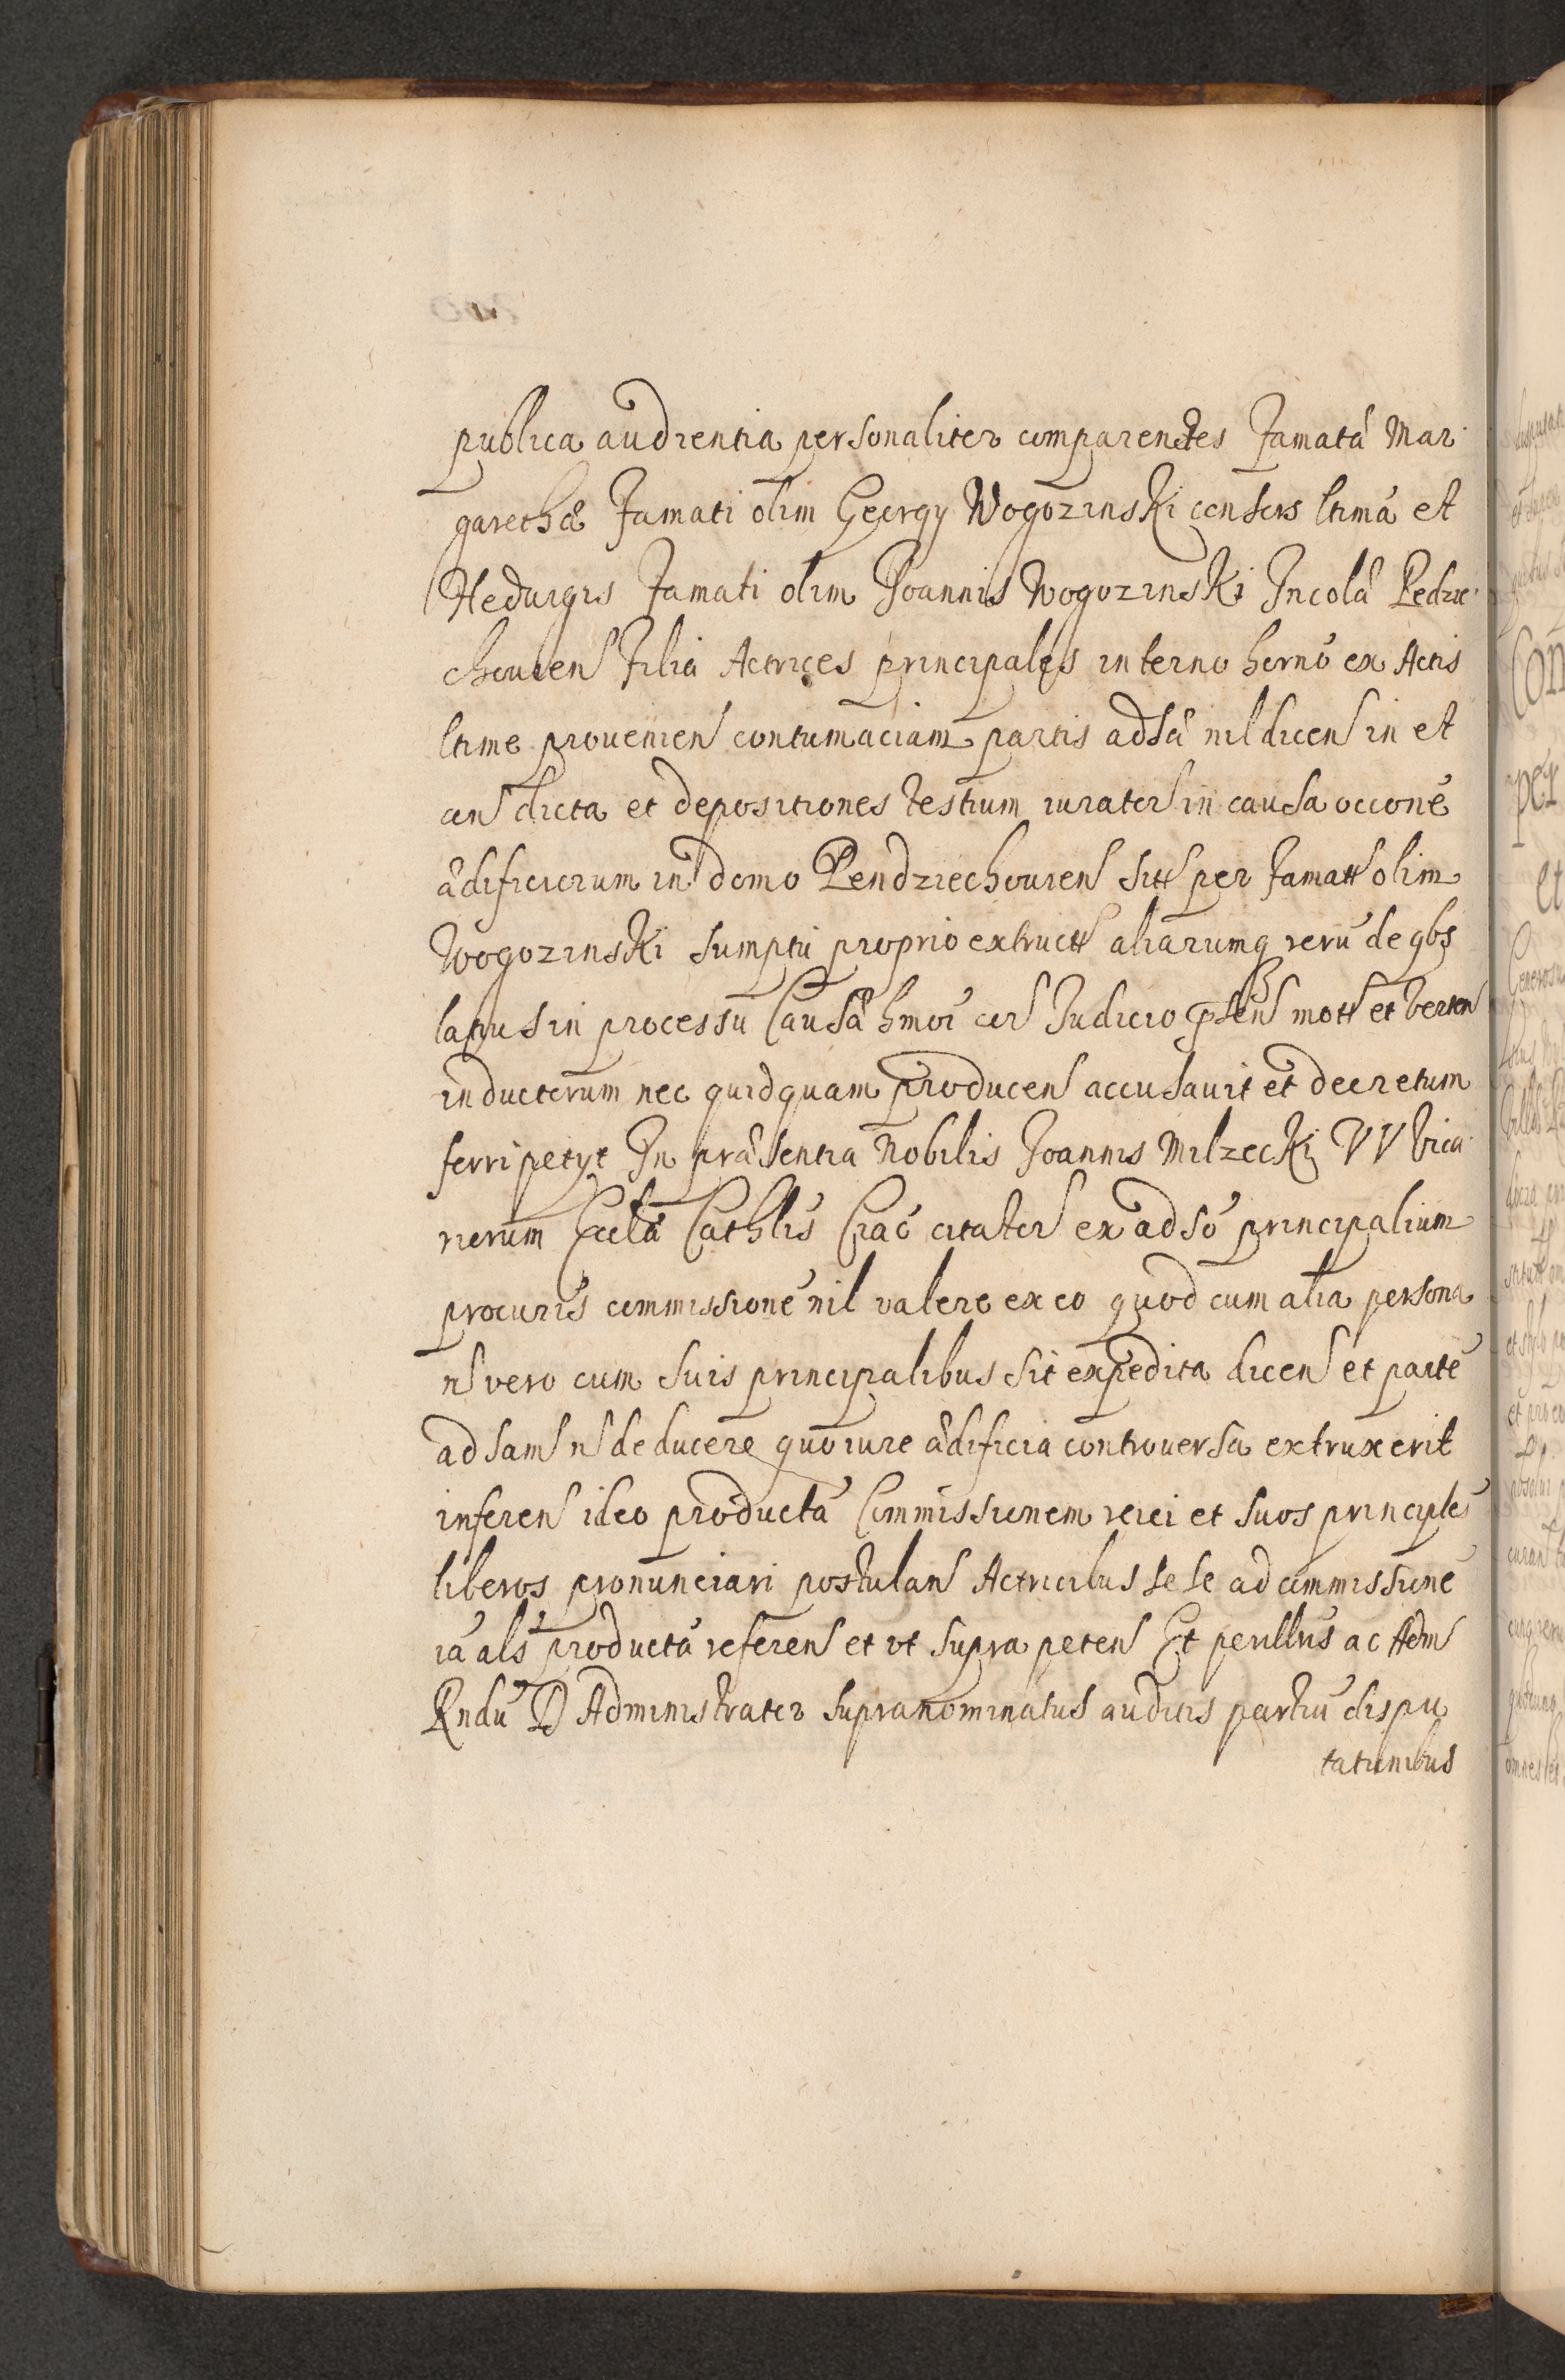 publica audientia personaliter comparentes Famatâ Mar
garethæ Famati olim Georgy Wogozinski consors ltimá et
Heduigis Famati olim Joannis Wogozinski Incolâ Pedzie
chouien Filia Actrices principales in terno hornó ex Actis
ltime prouenien contumaciam partis adsâ nil dicen in et
con dicta et depositiones testium iurator in causa occoné
ædificiorum in domo Pendziechouien sitt per Famatt olim
Wogozinski sumptu proprio extructt aliarumq rerú de qbs
latius in processu Causâ hmoi cor Judicio psen mott et verten
inductorum nec quidquam producen accusauit et decretum
ferri petyt In præsentia Nobilis Joannis Milzecki VV Vica
riorum Ecclâ Cathlis Crac citator ex adsó principalium
procuris commissioné nil valere ex eo quod cum alia persona
n vero cum suis principalibus sit expedita dicen et parté
adsam n deducere quo iure ædificia controuersa extruxerit
inferen ideo productá Commissionem reici et suos principles
liberos pronunciari postulan Actricibus sese ad commissioné
iá als productá referen et vt supra peten Et perillris ac Adm
Rndú D Administrator supranominatus auditis partiú dispu
tationibus